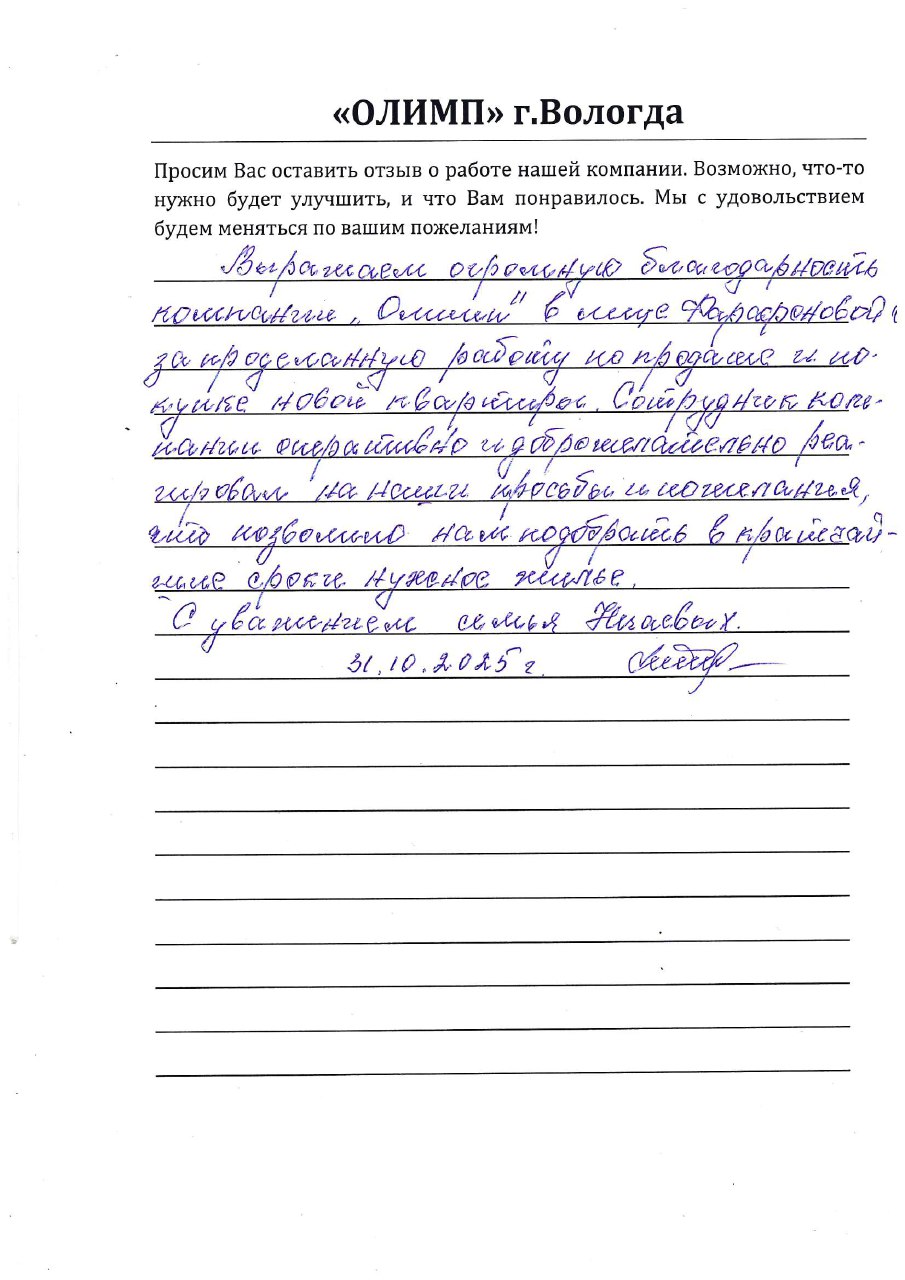 «ОЛИМП» г.Вологда
Просим Вас оставить отзыв о работе нашей компании. Возможно, что-то
нужно будет улучшить, и что Вам понравилось. Мы с удовольствием
будем меняться по вашим пожеланиям!
Выражаем огромную благодарность
компании „Олимп" в лице Фарафоновой
за проделанную работу по продаже и по-
купке новой квартиры. Сотрудник ком-
пании оперативно и доброжелательно реа-
гировал на наши просьбы и пожелания,
что позволило нам подобрать в кратчай-
шие сроки нужное жилье.
С уважением семья Нигаевых.
31.10.2025 г.